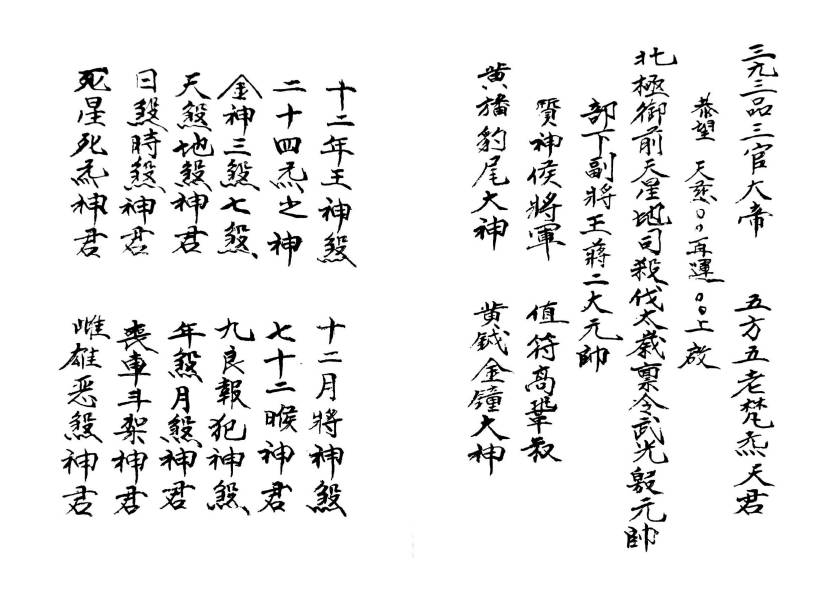 三元三品三官大帝　五方五老梵炁天君
恭望　天慈〻〻再運〻〻上啟
北極御前天星地司殺伐太歲稟令武光殷元帥
部下副將王蔣二大元帥
賢神侯將軍　值符高鞏叔
黄旛豹尾大神　黄鉞金鐘大神
十二年王神煞　十二月將神煞
二十四炁之神　七十二候神君
金神三煞七煞　九良報犯神煞
天煞地煞神君　年煞月煞神君
日煞時煞神君　喪車斗架神君
死星死炁神君　雌雄恶煞神君